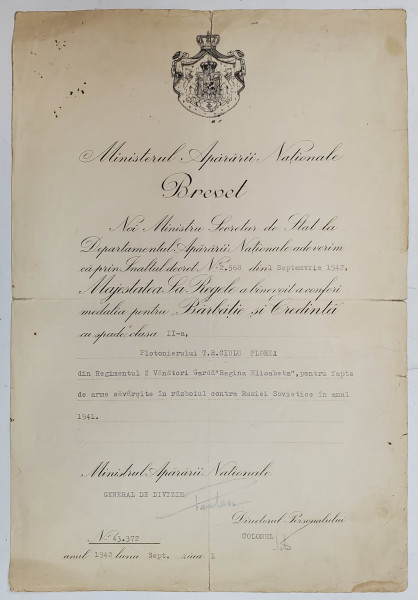 Ministerul Apărării Naționale
Brevet
Noi Ministru Secretar de Stat la
Departamentul Apărării Naționale adeverim
că prin Înaltul decret No 2.568 din 1 Septemvrie 1942.
Majestatea Sa Regele a binevoit a conferi
medalia pentru „Bărbăție și Credință
cu spade" clasa II-a,
Plotonierului T.R.CIULU FLOREA
din Regimentul 2 Vânători Gardă"Regina Elisabeta",pentru fapte
de arme săvârșite în războiul contra Rusiei Sovietice în anul
1941.
Ministrul Apărării Naționale
GENERAL DE DIVIZIE
Directorul Personalului
COLONEL
No 43.372
anul 1942 luna Sept. ziua 1